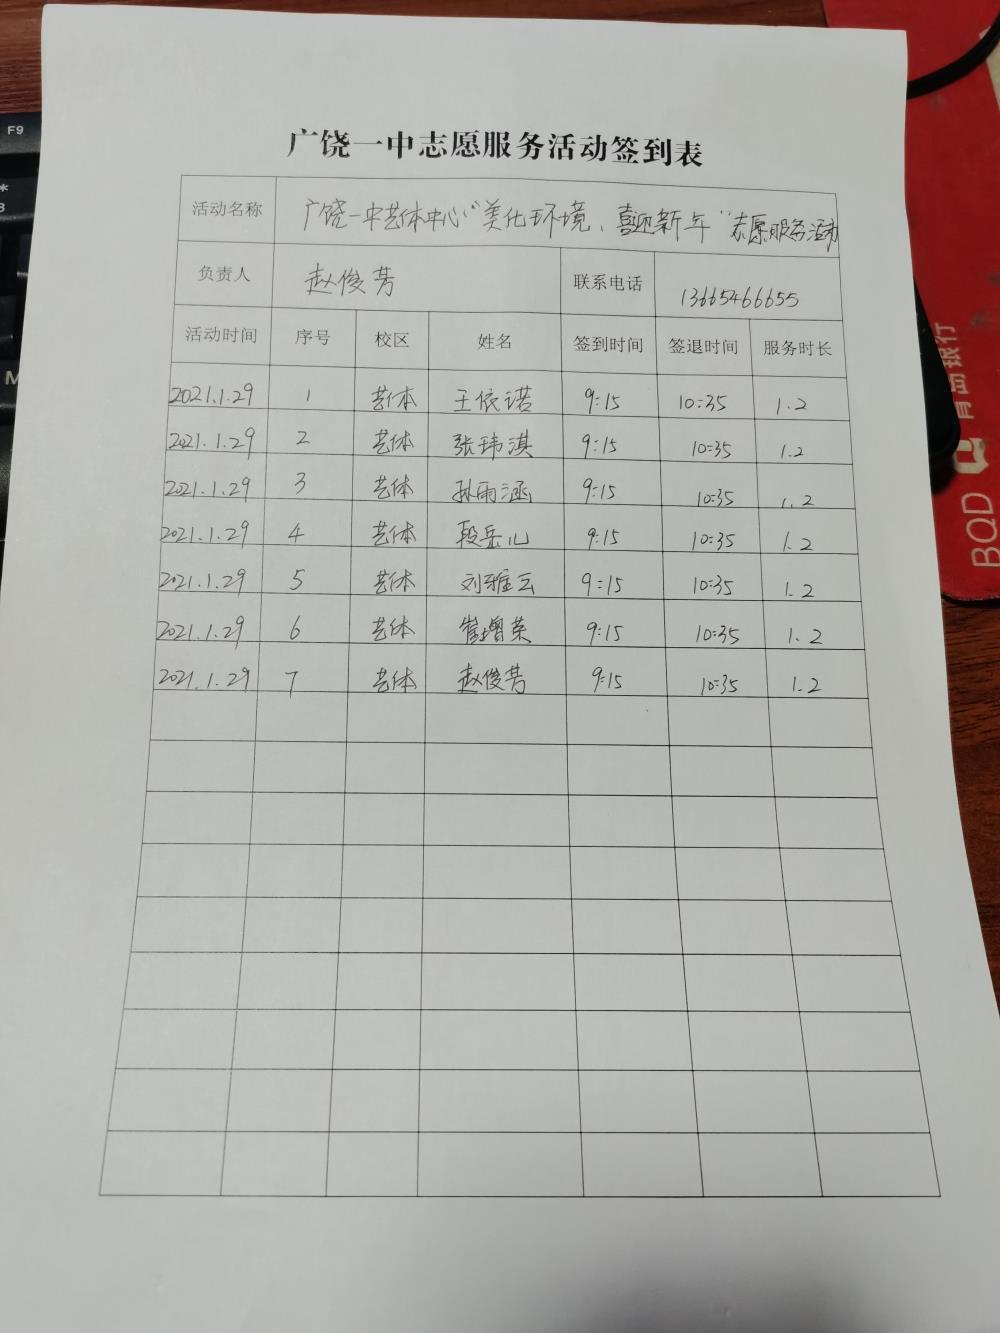 F9
广饶一中志愿服务活动签到表
活动名称 广饶一中艺体中心“美化环境、喜迎新年”志愿服务活动
负责人 赵俊芳 联系电话 13665466655
活动时间 序号 校区 姓名 签到时间 签退时间 服务时长
2021.1.29 1 艺体 王依诺 9:15 10:35 1.2
2021.1.29 2 艺体 张玮淇 9:15 10:35 1.2
2021.1.29 3 艺体 孙雨涵 9:15 10:35 1.2
2021.1.29 4 艺体 段岳儿 9:15 10:35 1.2
2021.1.29 5 艺体 刘雅云 9:15 10:35 1.2
2021.1.29 6 艺体 崔增荣 9:15 10:35 1.2
2021.1.29 7 艺体 赵俊芳 9:15 10:35 1.2
BQD 青岛银行